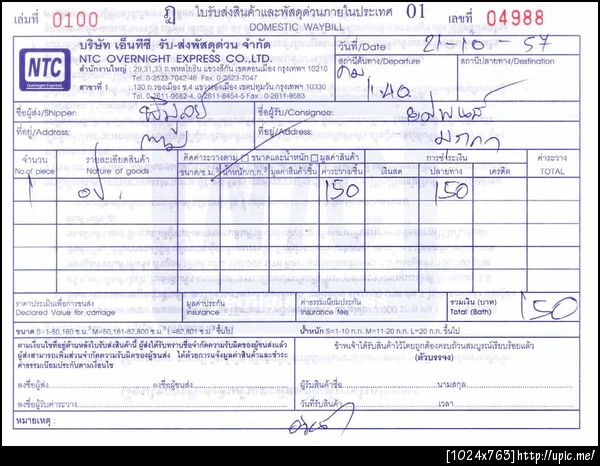 เล่มที่ 0100 ฎ ใบรับส่งสินค้าและพัสดุด่วนภายในประเทศ 01 เลขที่ 04988
DOMESTIC WAYBILL
NTC
Overnight Express
บริษัท เอ็นทีซี รับ-ส่งพัสดุด่วน จำกัด
NTC OVERNIGHT EXPRESS CO.,LTD.
สำนักงานใหญ่ : 29,31,33 ถ.พหลโยธิน แขวงสีกัน เขตดอนเมือง กรุงเทพฯ 10210
Tel. 0-2523-7042-46 Fax. 0-2523-7047
สาขาที่ 1 : 130 ถ.รองเมือง ซ.4 แขวงรองเมือง เขตปทุมวัน กรุงเทพฯ 10330
Tel. 0-2611-9582-4, 0-2611-8454-5 Fax. 0-2611-9583
วันที่/Date 21-10-57
สถานีต้นทาง/Departure สถานีปลายทาง/Destination
ชื่อผู้ส่ง/Shipper: ชื่อผู้รับ/Consignee:
ที่อยู่/Address: ที่อยู่/Address:
จำนวน รายละเอียดสินค้า คิดค่าระวางตาม ขนาดและน้ำหนัก มูลค่าสินค้า การชำระเงิน ค่าระวาง
No.of piece Nature of goods ขนาด/ซ.ม.³ น้ำหนัก/ก.ก. มูลค่าสินค้า/ชิ้น ค่าระวาง/ชิ้น เงินสด ปลายทาง เครดิต TOTAL
1 150 150
ราคาประเมินเพื่อการขนส่ง มูลค่าประกัน ค่าธรรมเนียมประกัน รวมเงิน (บาท)
Declared Value for carriage Insurance Insurance fee Total (Bath) 150
ขนาด S=1-50,160 ซ.ม.³ M=50,161-82,800 ซ.ม.³ L=82,801 ซ.ม.³ ขึ้นไป น้ำหนัก S=1-10 ก.ก. M=11-20 ก.ก. L=20 ก.ก. ขึ้นไป
ตามเงื่อนไขที่อยู่ด้านหลังใบรับส่งสินค้านี้ ผู้ส่งได้รับทราบข้อจำกัดความรับผิดของผู้ขนส่งแล้ว
ผู้ส่งสามารถเพิ่มส่วนจำกัดความรับผิดของผู้ขนส่ง ได้ด้วยการแจ้งมูลค่าสินค้าและชำระ
ค่าธรรมเนียมประกันตามเงื่อนไข
ข้าพเจ้าได้รับสินค้าไว้โดยถูกต้องครบถ้วนสมบูรณ์เรียบร้อยแล้ว
(ตัวบรรจง)
ลงชื่อผู้ส่ง ลงชื่อผู้ขนส่ง ผู้รับสินค้าชื่อ นามสกุล
ลงชื่อผู้รับค่าระวาง วันที่รับสินค้า เวลา
หมายเหตุ :
[1024x763]http://upic.me/